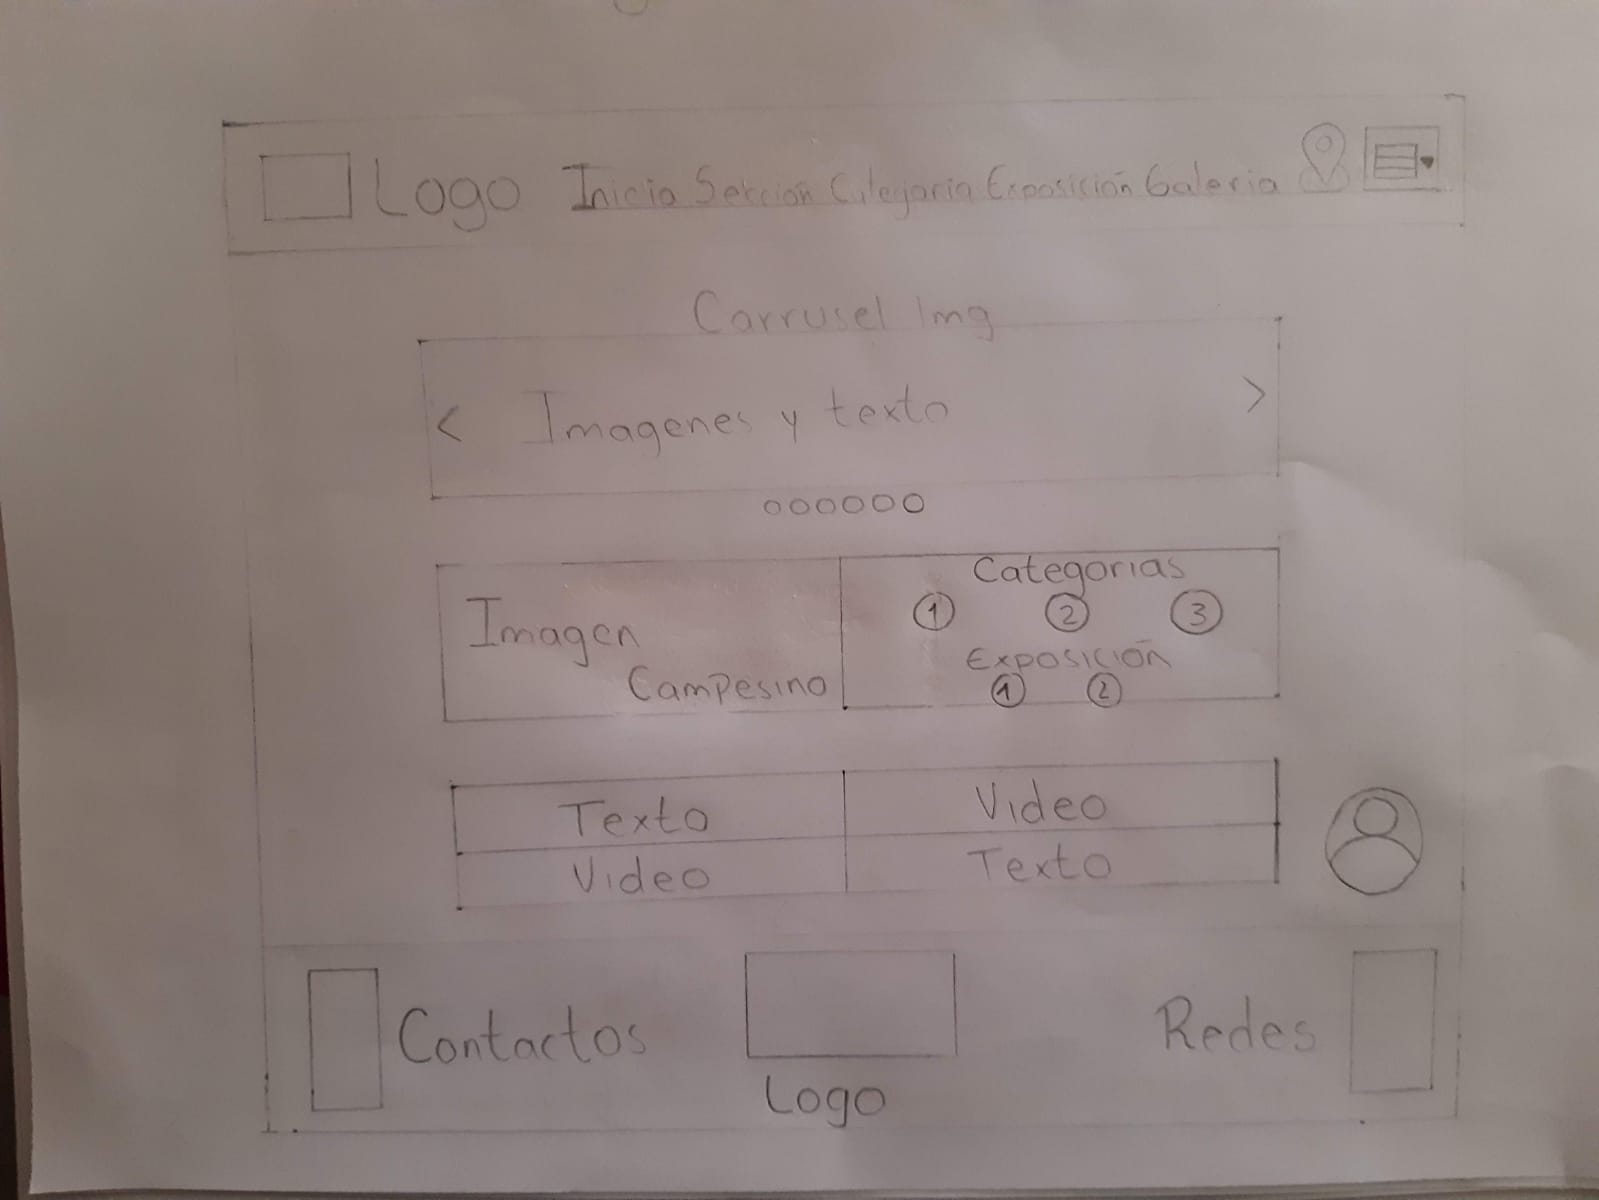 Logo Inicio Sección Categoria Exposición Galeria
Carrusel Img
< Imagenes y texto >
Imagen
Campesino
Categorias
1 2 3
Exposición
1 2
Texto Video
Video Texto
Contactos
Logo
Redes